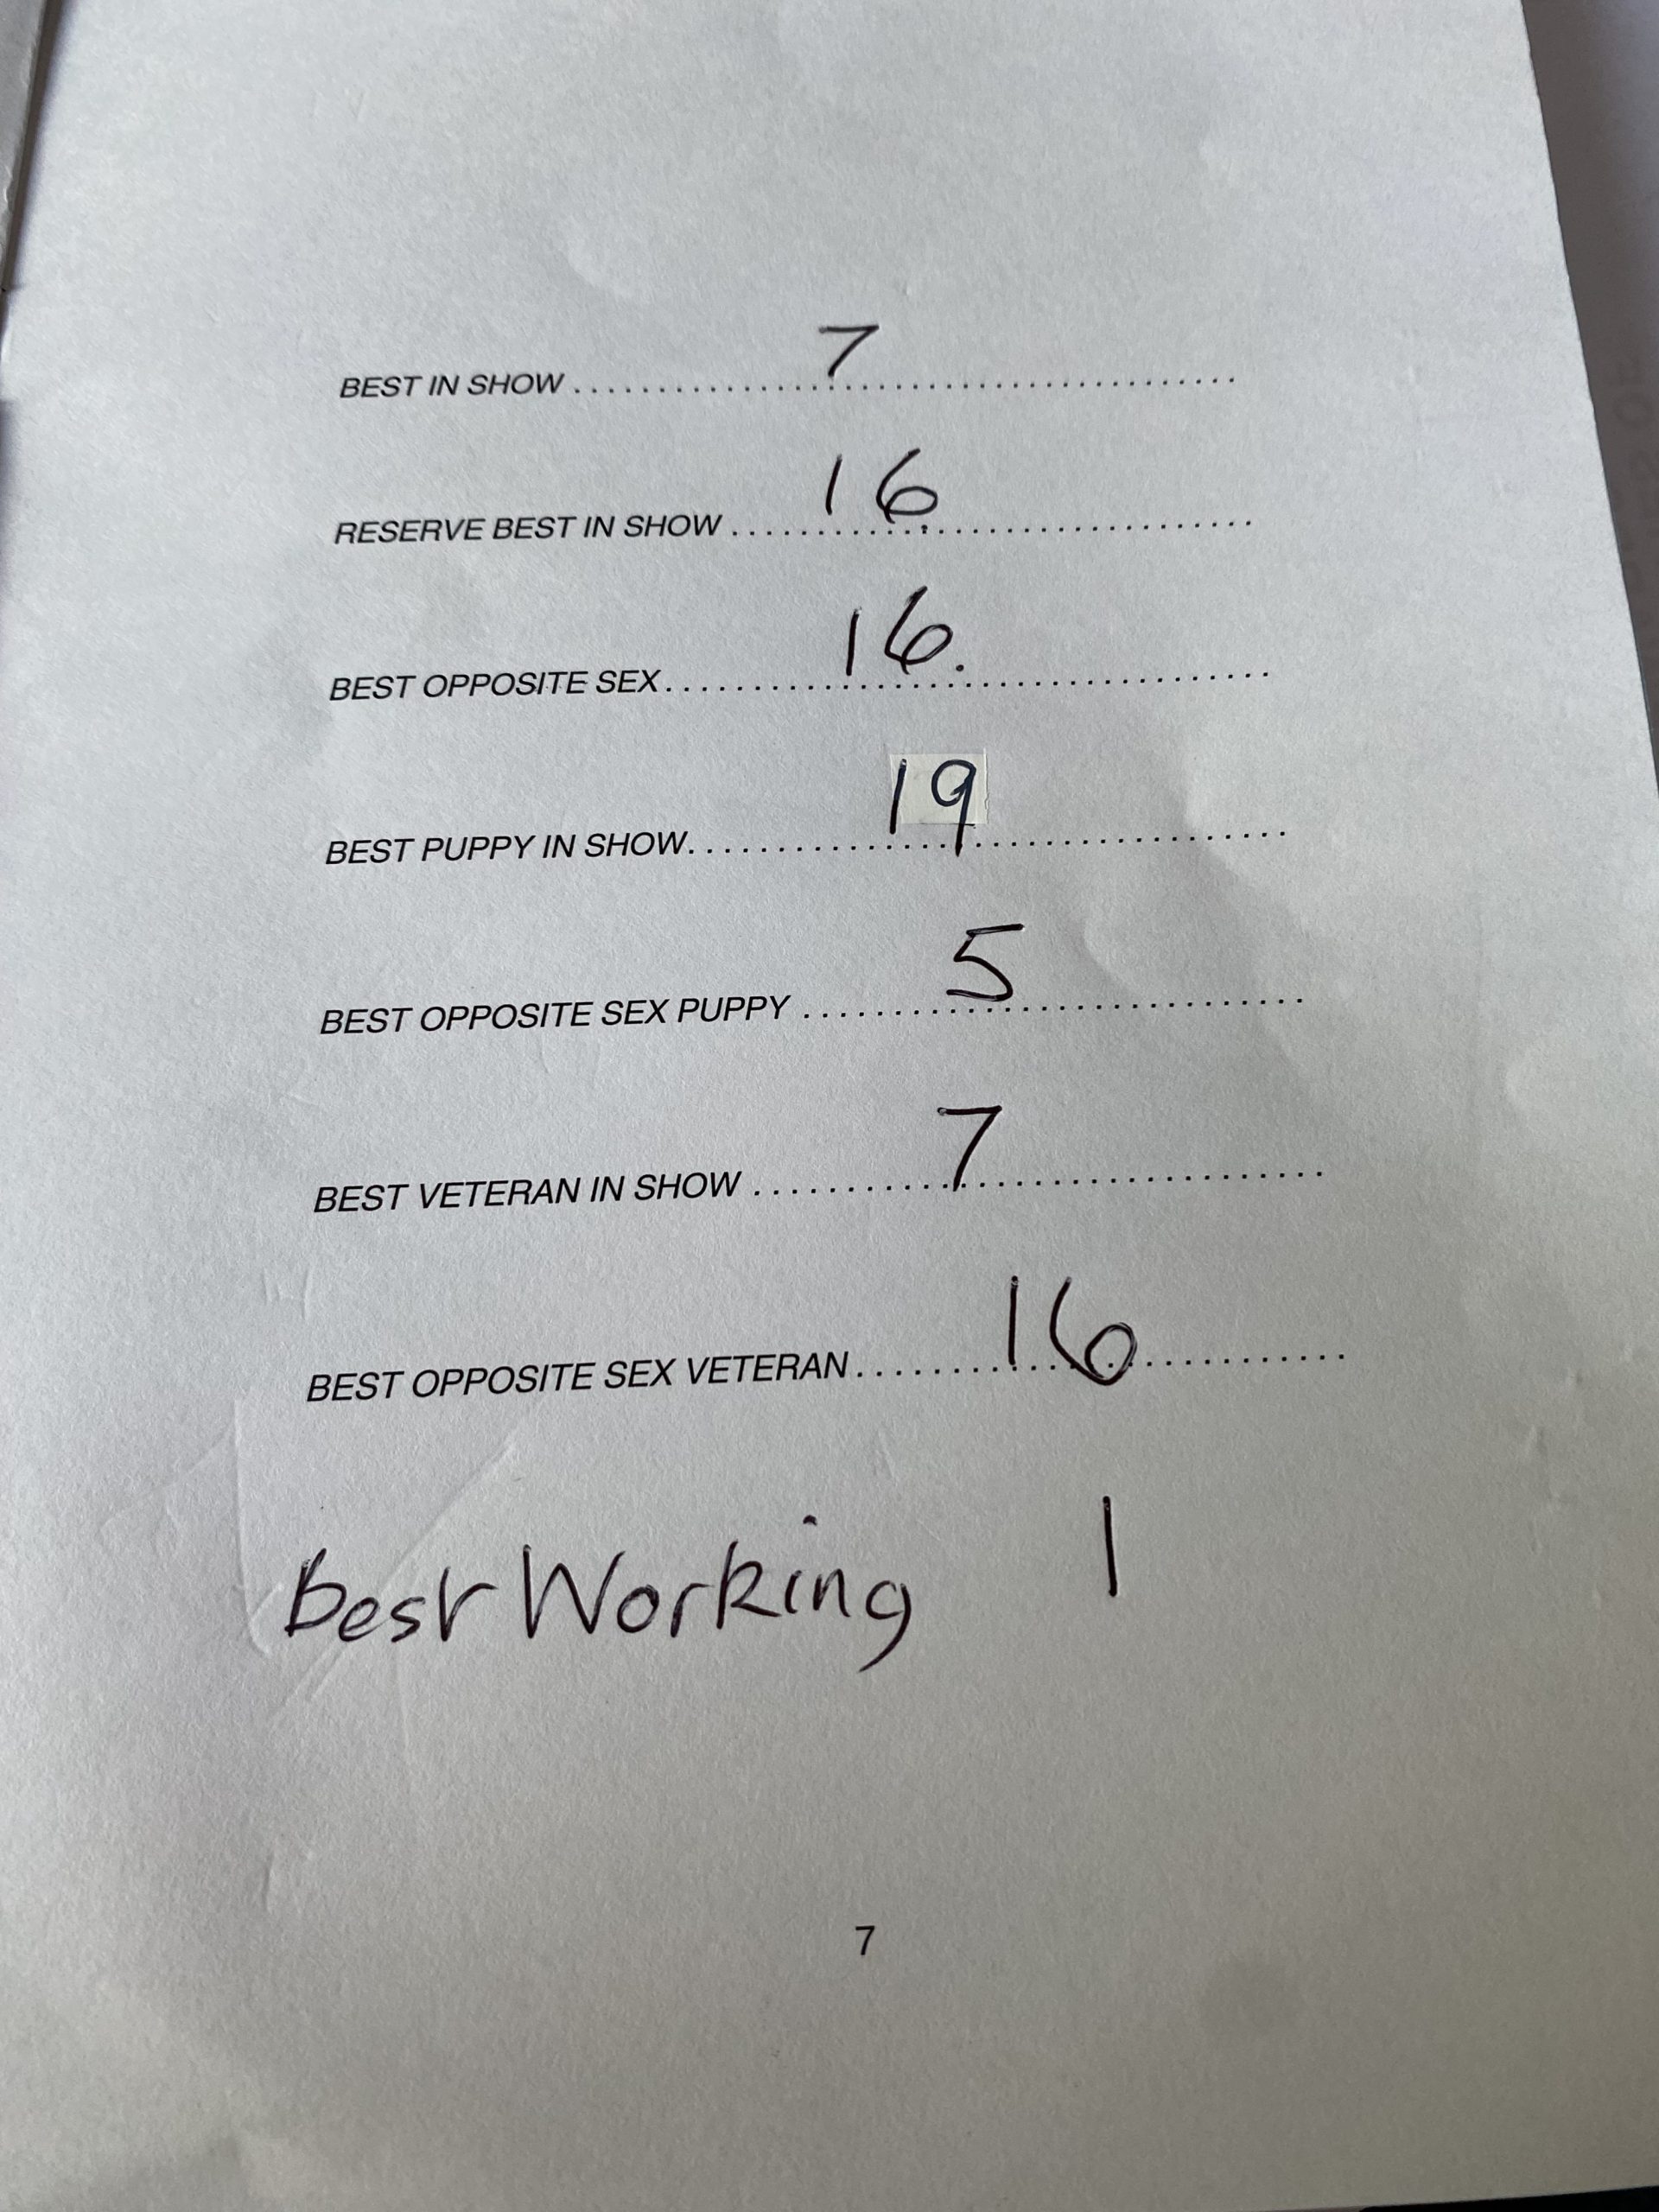 BEST IN SHOW ........ 7
RESERVE BEST IN SHOW ........ 16.
BEST OPPOSITE SEX ........ 16.
BEST PUPPY IN SHOW ........ 19
BEST OPPOSITE SEX PUPPY ........ 5
BEST VETERAN IN SHOW ........ 7
BEST OPPOSITE SEX VETERAN ........ 16
Best Working 1
7